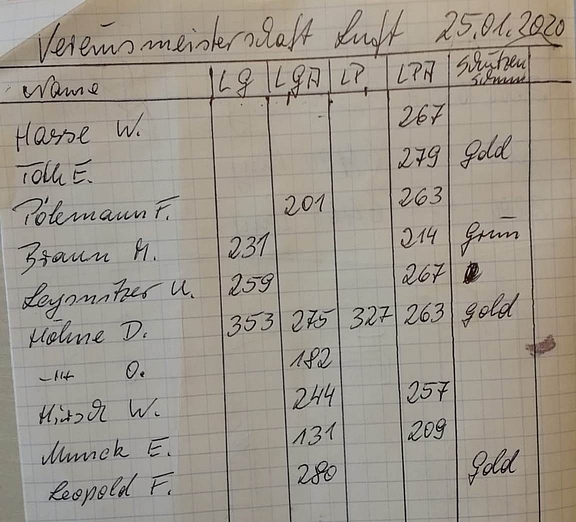 Vereinsmeisterschaft Luft 25.01.2020
Name LG LGA LP LPA Schützenschnur
Hasse W. 267
Toth E. 279 gold
Pölemann F. 201 263
Braun M. 231 214 grün
259 267
Höhne D. 353 275 327 263 gold
-"- O. 182
Hirsch W. 244 257
Munck E. 131 209
Leopold F. 280 Gold